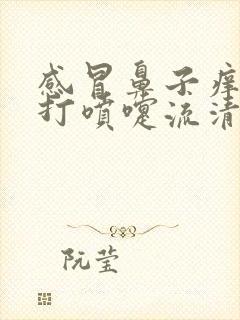 感冒鼻子痒
打喷嚏流清
阮莹